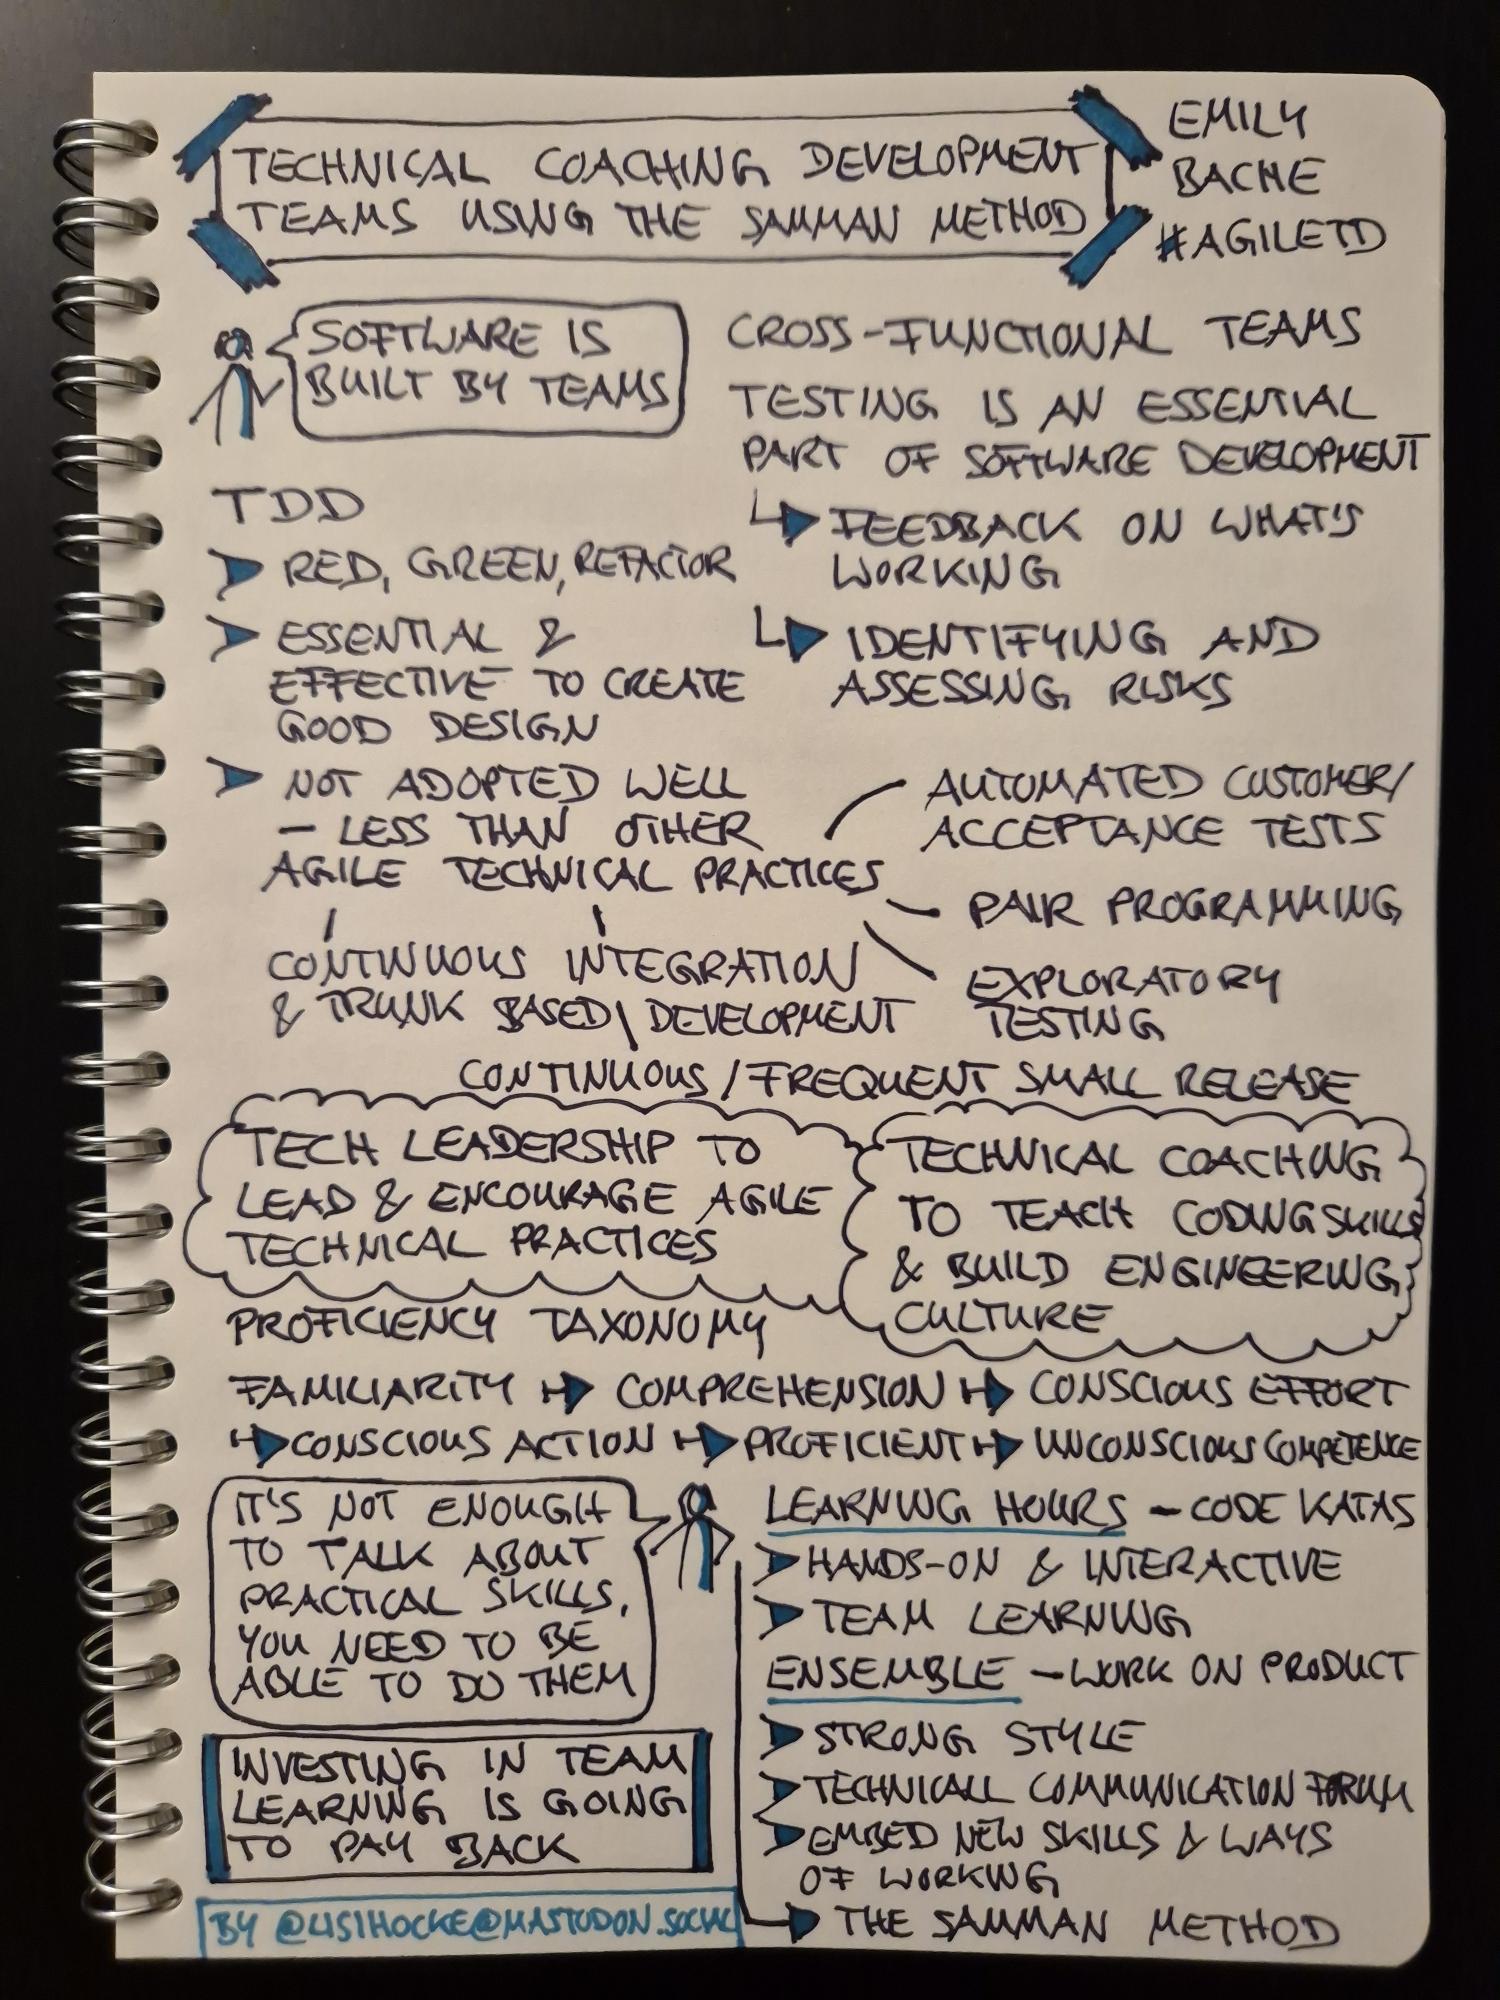 TECHNICAL COACHING DEVELOPMENT
TEAMS USING THE SAMMAN METHOD
EMILY
BACHE
#AGILETD
SOFTWARE IS
BUILT BY TEAMS
CROSS-FUNCTIONAL TEAMS
TESTING IS AN ESSENTIAL
PART OF SOFTWARE DEVELOPMENT
FEEDBACK ON WHAT'S
WORKING
IDENTIFYING AND
ASSESSING RISKS
TDD
RED, GREEN, REFACTOR
ESSENTIAL &
EFFECTIVE TO CREATE
GOOD DESIGN
NOT ADOPTED WELL
- LESS THAN OTHER
AGILE TECHNICAL PRACTICES
AUTOMATED CUSTOMER/
ACCEPTANCE TESTS
PAIR PROGRAMMING
EXPLORATORY
TESTING
CONTINUOUS INTEGRATION
& TRUNK BASED DEVELOPMENT
CONTINUOUS / FREQUENT SMALL RELEASE
TECH LEADERSHIP TO
LEAD & ENCOURAGE AGILE
TECHNICAL PRACTICES
TECHNICAL COACHING
TO TEACH CODING SKILLS
& BUILD ENGINEERING
CULTURE
PROFICIENCY TAXONOMY
FAMILIARITY COMPREHENSION CONSCIOUS EFFORT
CONSCIOUS ACTION PROFICIENT UNCONSCIOUS COMPETENCE
IT'S NOT ENOUGH
TO TALK ABOUT
PRACTICAL SKILLS,
YOU NEED TO BE
ABLE TO DO THEM
INVESTING IN TEAM
LEARNING IS GOING
TO PAY BACK
LEARNING HOURS - CODE KATAS
HANDS-ON & INTERACTIVE
TEAM LEARNING
ENSEMBLE - WORK ON PRODUCT
STRONG STYLE
TECHNICALL COMMUNICATION FORUM
EMBED NEW SKILLS & WAYS
OF WORKING
THE SAMMAN METHOD
BY @LISIHOCKE@MASTODON.SOCIAL